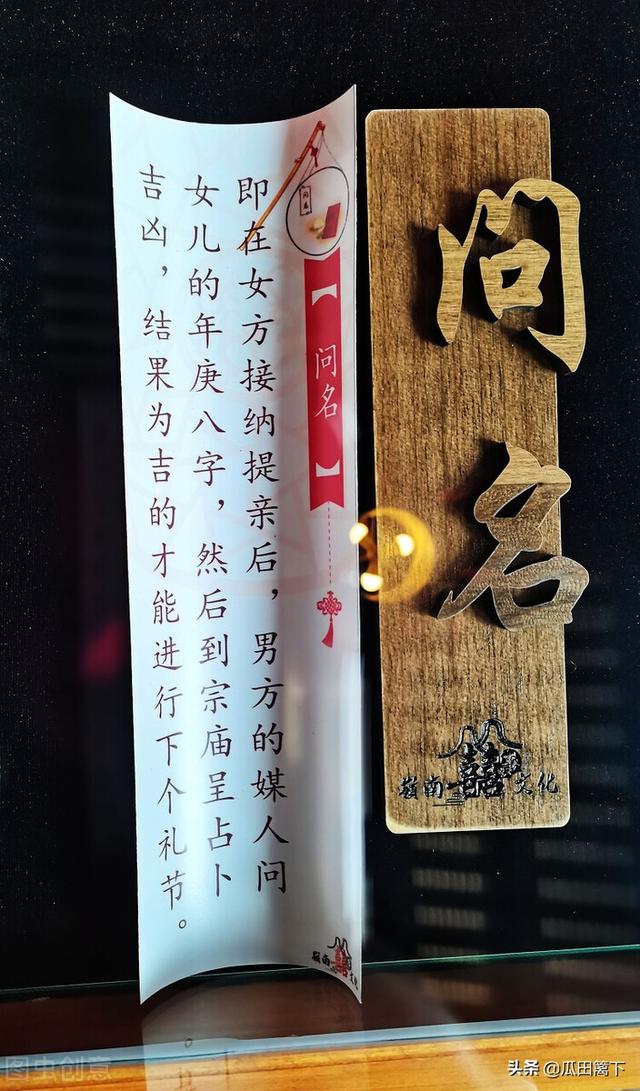 问名
嶺南 囍 文化
【问名】
即在女方接纳提亲后，男方的媒人问
女儿的年庚八字，然后到宗庙呈占卜
吉凶，结果为吉的才能进行下个礼节。
问名
嶺南 囍 文化
图虫创意
头条 @瓜田篱下